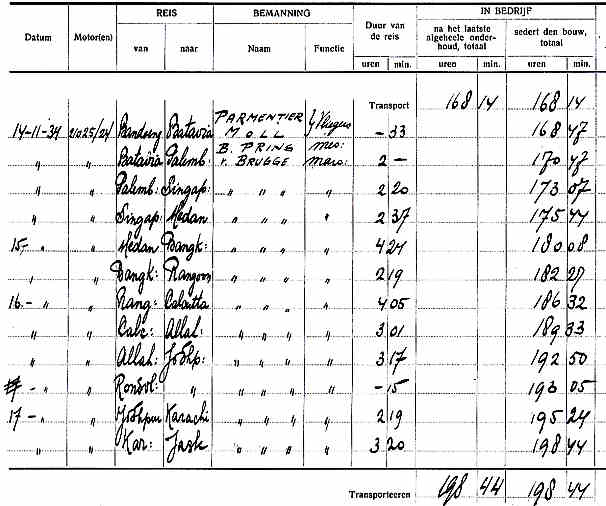 REIS BEMANNING Duur van de reis IN BEDRIJF
Datum Motor(en) van naar Naam Functie na het laatste algeheele onderhoud, totaal sedert den bouw, totaal
uren min. uren min. uren min.
Transport 168 14 168 14
14-11-34 21025/24 Bandung Batavia PARMENTIER MOLL Vliegers - 33 168 47
" " Batavia Palemb: B. PRINS v. BRUGGE mec: marc: 2 - 170 47
" " Palemb: Singap: " " " " 2 20 173 07
" " Singap: Medan " " " " 2 37 175 44
15- " " Medan Bangk: " " " " 4 24 180 08
" " Bangk: Rangoon " " " " 2 19 182 27
16.- " " Rang: Calcutta " " " " 4 05 186 32
" " Calc: Allah: " " " " 3 01 189 33
" " Allah: Jodhp: " " " " 3 17 192 50
- " " Rondvl: " " " " " - 15 193 05
17 - " " Jodhpur Karachi " " " " 2 19 195 24
" " Kar: Jask " " " " 3 20 198 44
Transporteeren 198 44 198 44